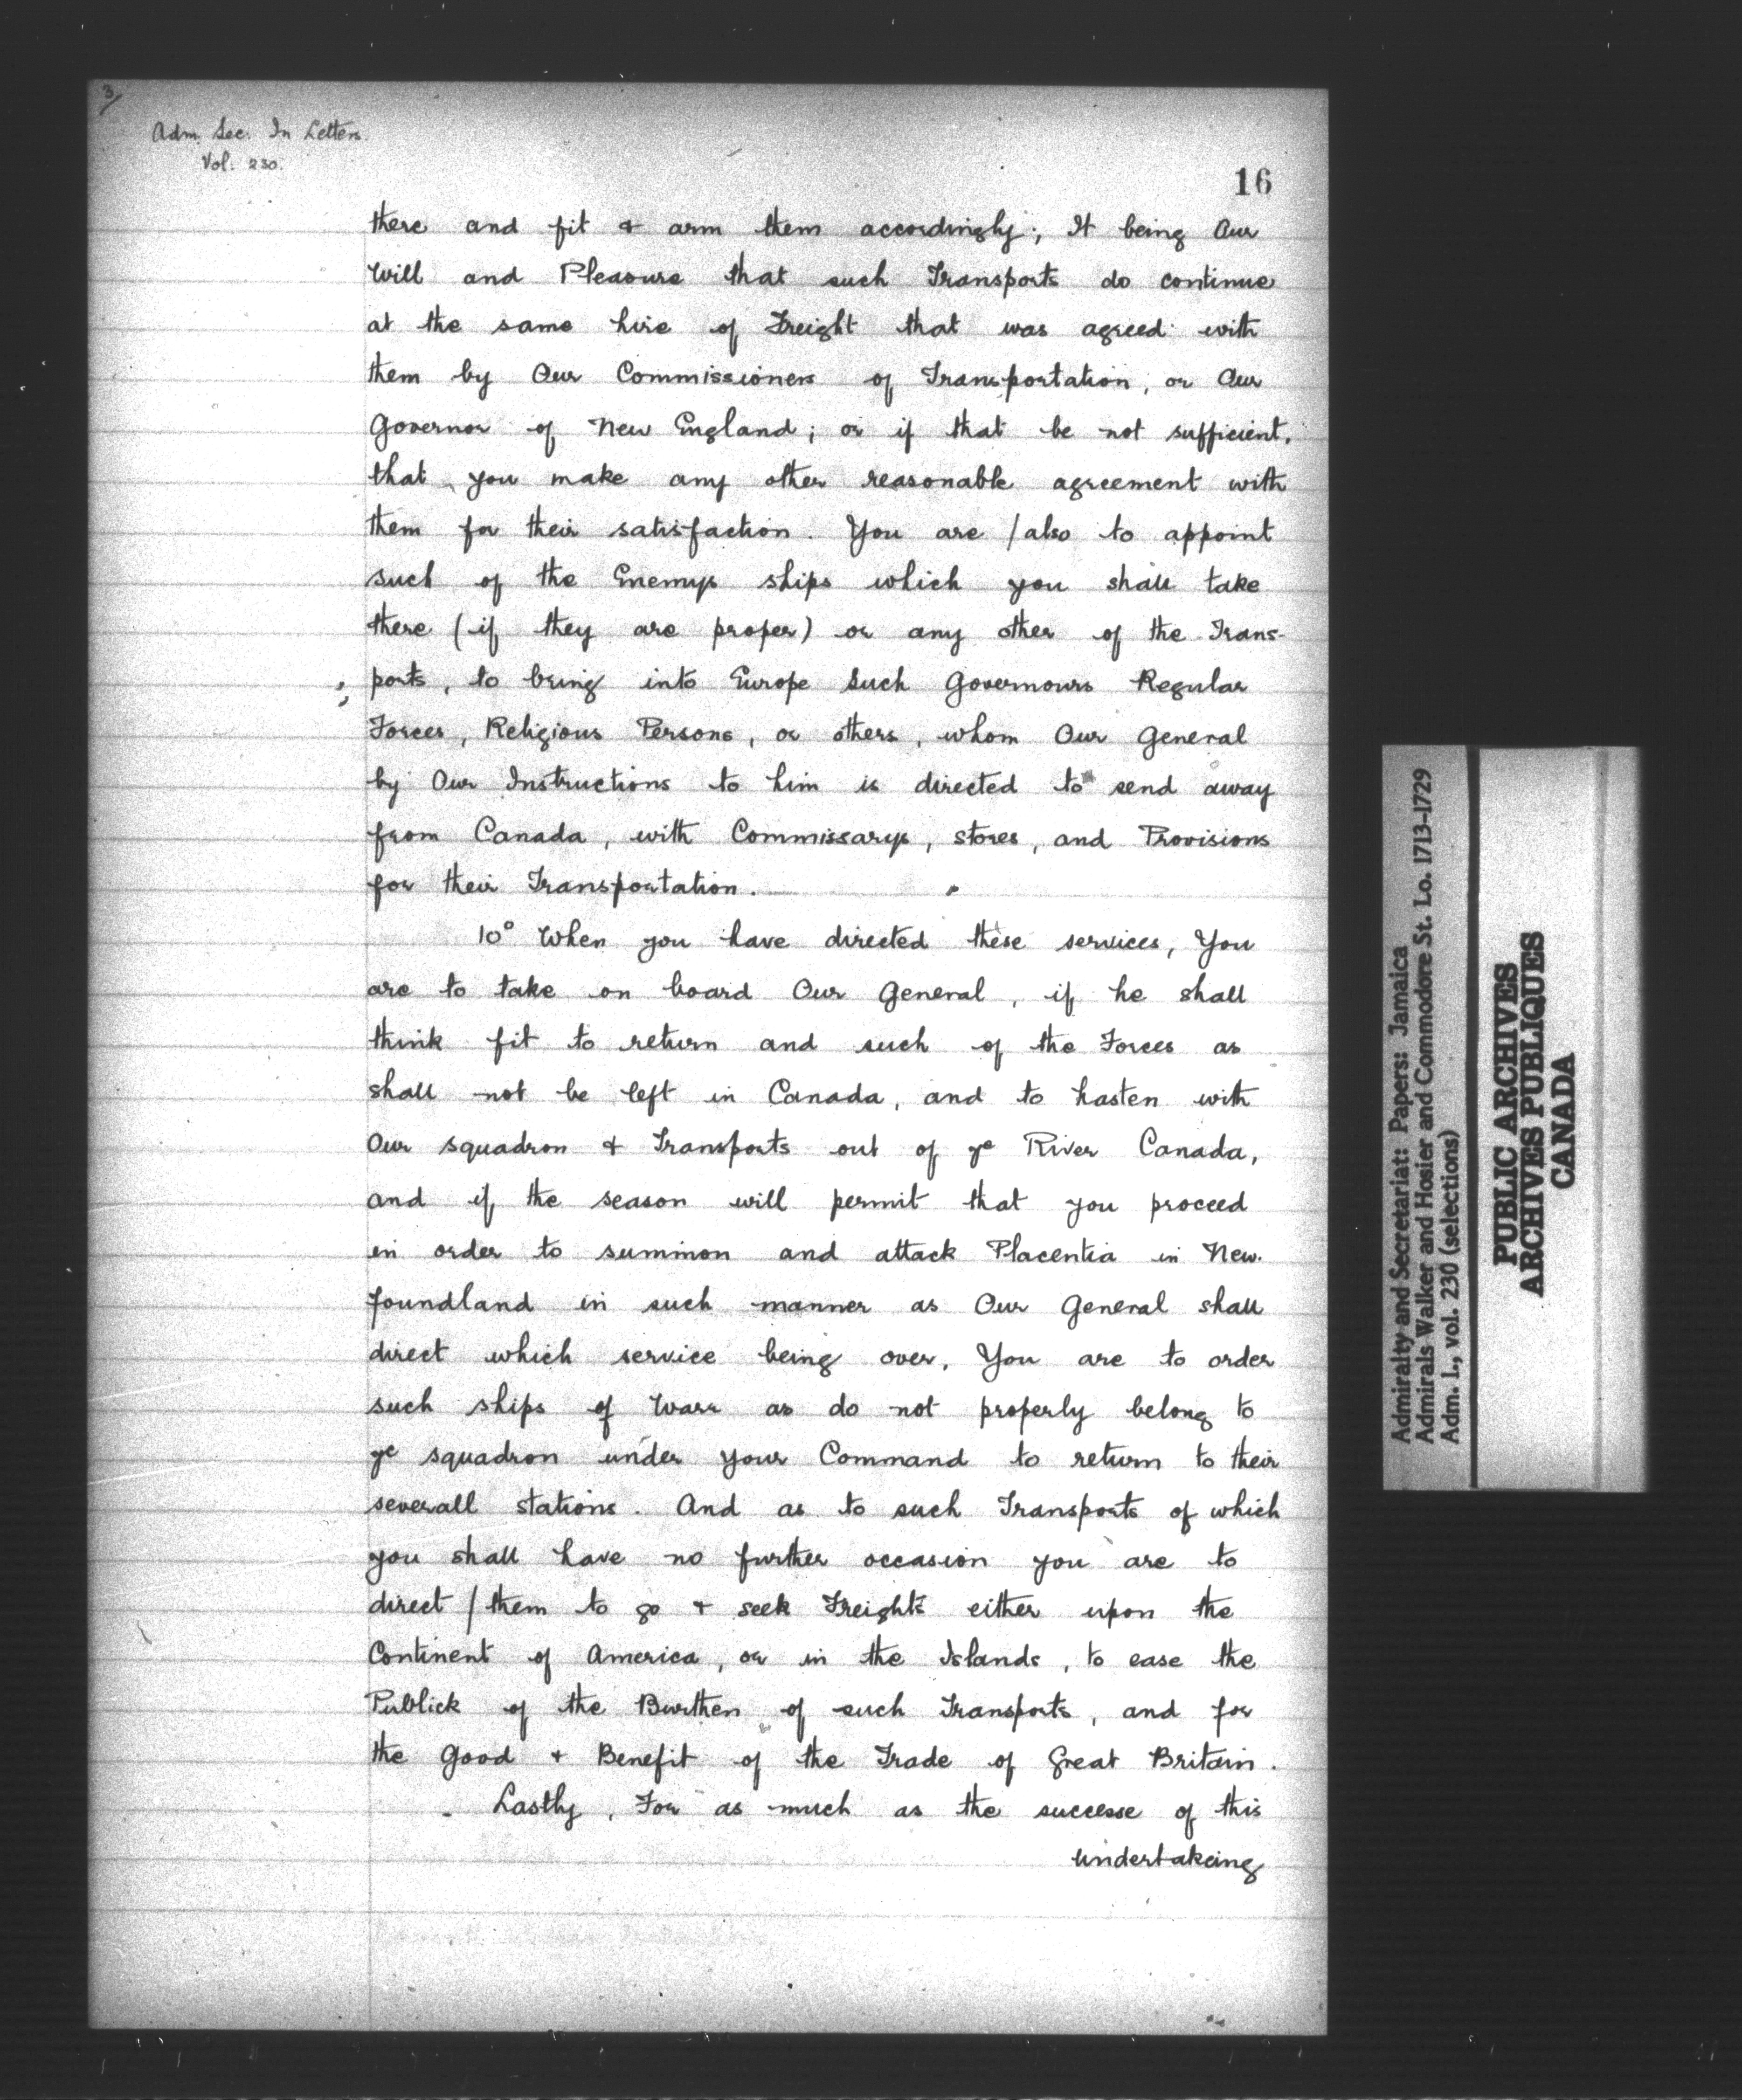 3/
Adm. Sec. In Letters.
Vol. 230.
16
there and fit & arm them accordingly; It being Our
Will and Pleasure that such Transports do continue
at the same hire of Freight that was agreed with
them by Our Commissioners of Transportation, or Our
Governor of New England; or if that be not sufficient,
that you make any other reasonable agreement with
them for their satisfaction. You are / also to appoint
such of the Enemys ships which you shall take
there (if they are proper) or any other of the Trans-
ports, to bring into Europe Such Governours Regular
Forces, Religious Persons, or others, whom Our General
by Our Instructions to him is directed to send away
from Canada, with Commissarys, stores, and Provisions
for their Transportation.
10° When you have directed these services, You
are to take on board Our General, if he shall
think fit to return and such of the Forces as
shall not be left in Canada, and to hasten with
Our squadron & Transports out of ye River Canada,
and if the season will permit that you proceed
in order to summon and attack Placentia in New-
foundland in such manner as Our General shall
direct which service being over, You are to order
such ships of Warr as do not properly belong to
ye squadron under your Command to return to their
severall stations. And as to such Transports of which
you shall have no further occasion you are to
direct / them to go & seek Freights either upon the
Continent of America, or in the Islands, to ease the
Publick of the Burthen of such Transports, and for
the Good & Benefit of the Trade of Great Britain.
Lastly, For as much as the successe of this
undertakeing
Admiralty and Secretariat: Papers: Jamaica
Admirals Walker and Hosier and Commodore St. Lo. 1713-1729
Adm. 1., vol. 230 (selections)
PUBLIC ARCHIVES
ARCHIVES PUBLIQUES
CANADA